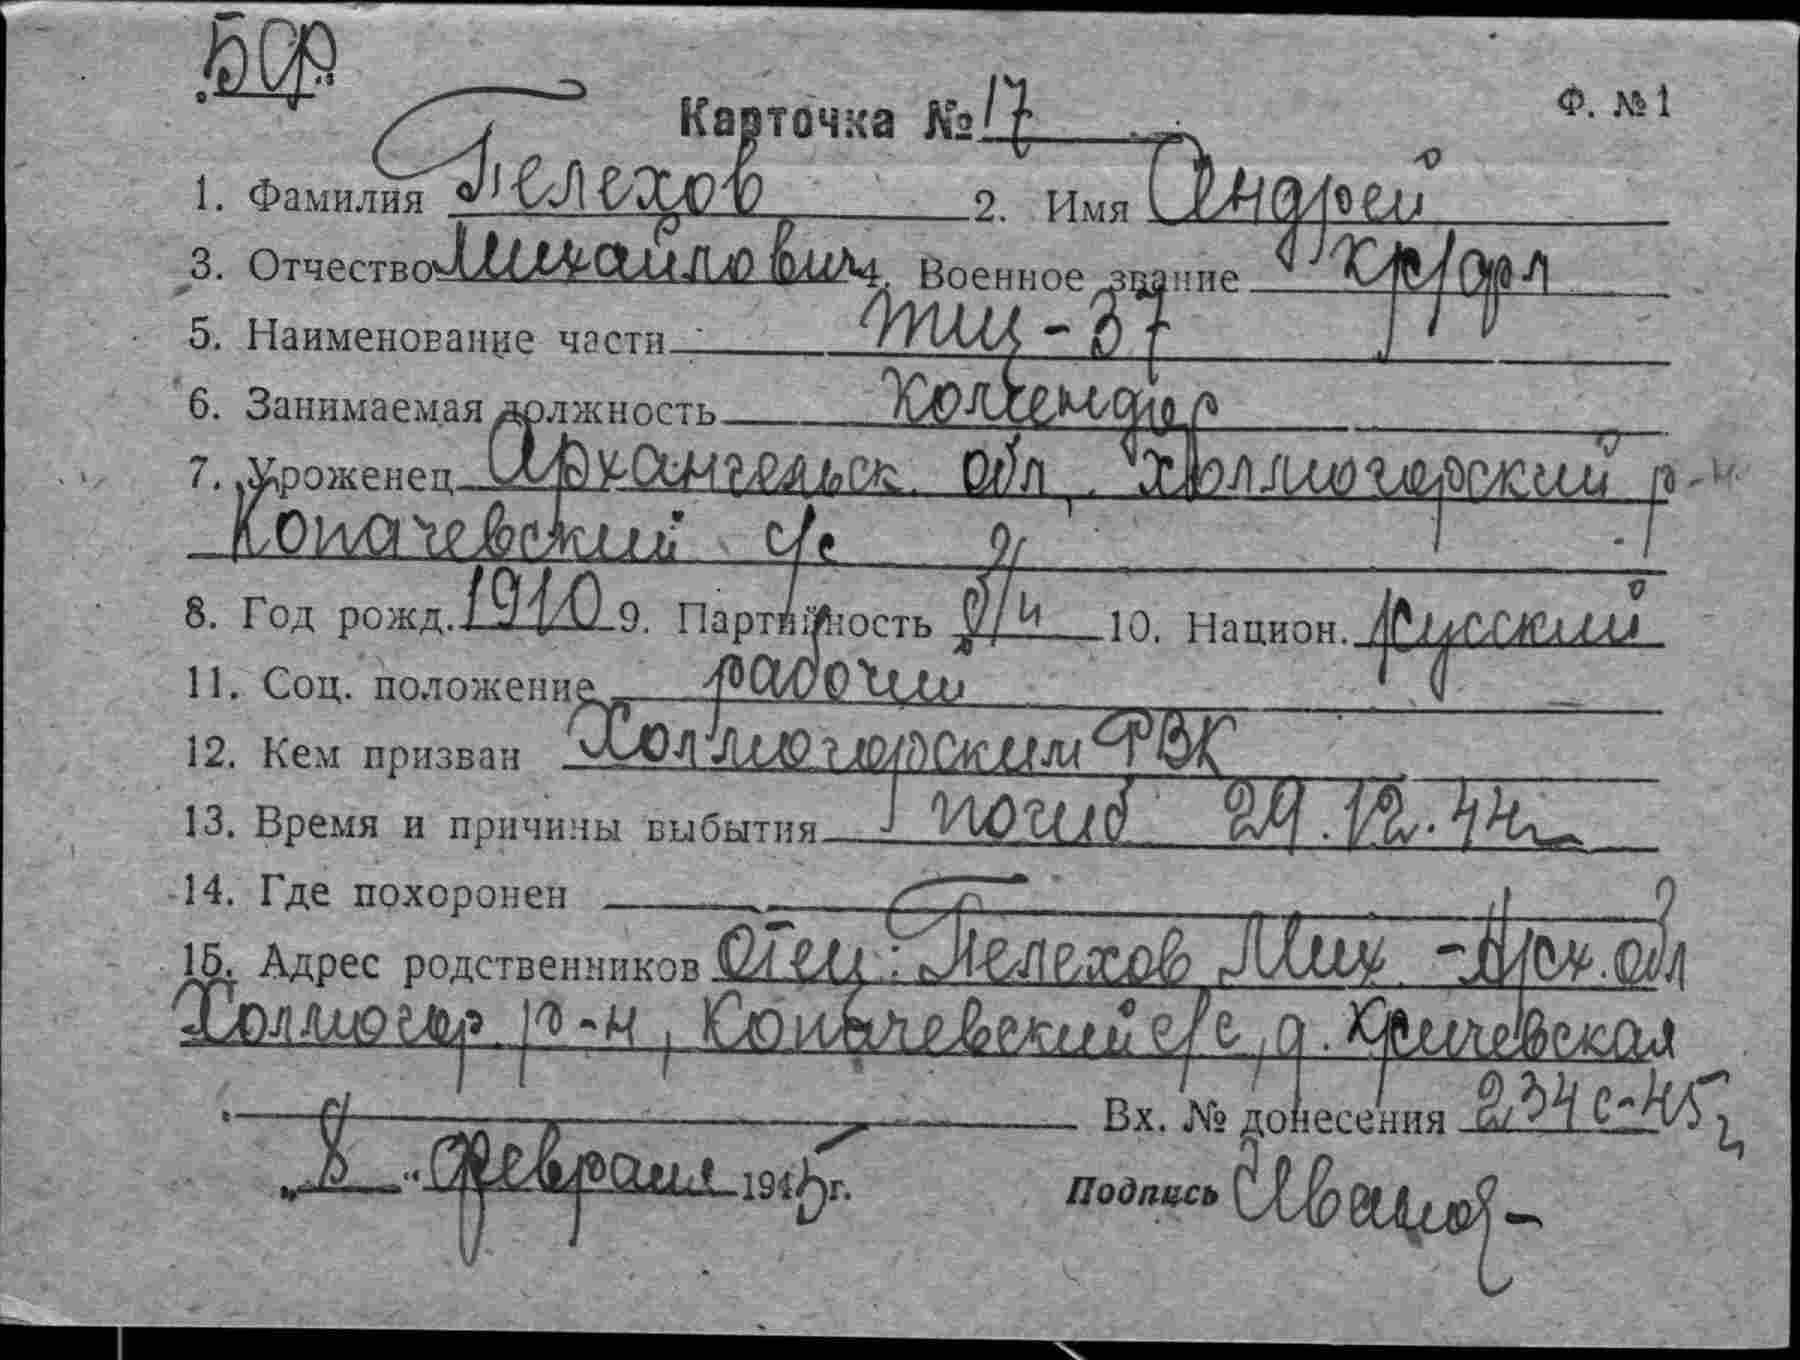 БСФ
Карточка № 17 Ф. № 1
1. Фамилия Пелехов 2. Имя Андрей
3. Отчество Михайлович 4. Военное звание кр/фл
5. Наименование части ТЩ-37
6. Занимаемая должность Комендор
7. Уроженец Архангельск. обл. Холмогорский р-н
Копачевский с/с
8. Год рожд. 1910 9. Партийность б/п 10. Национ. русский
11. Соц. положение рабочий
12. Кем призван Холмогорским РВК
13. Время и причины выбытия погиб 29.12.44г
14. Где похоронен
15. Адрес родственников Отец: Пелехов Мих - Арх. обл
Холмогор р-н, Копачевский с/с, д. Кричевская
Вх. № донесения 234с-45г
„8“ февраля 1945 г. Подпись Иванов